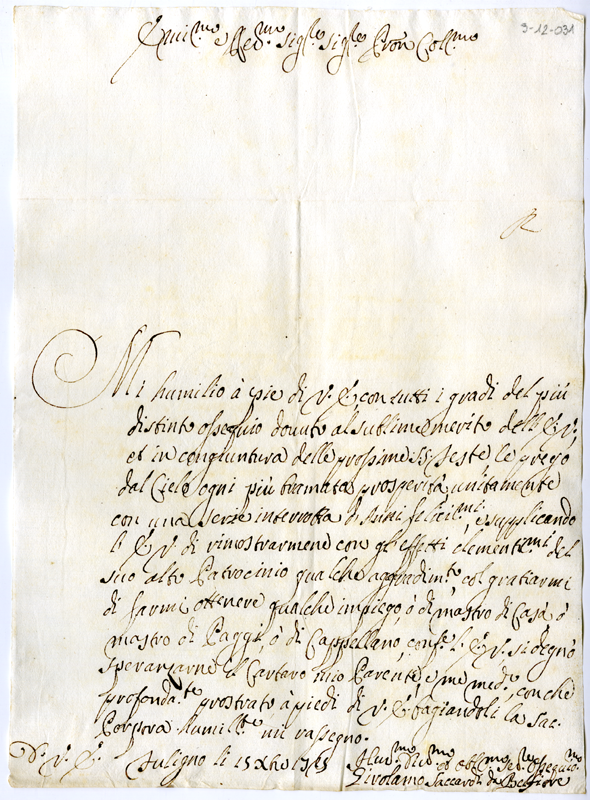 9-12-031
Emin.mo e Red.mo Sig.re Sig.re Pron Coll.mo
Mi humilio à pie di V. E. con tutti i gradi del più
distinto ossequio dovuto al sublime merito dell'E. V.
et in congiuntura delle prossime SS. Feste le prego
dal Cielo ogni più bramata prosperità unitamente
con una serie interrotta d'Anni felici.mi, e supplicando
l'E. V. di rimostrarmene con gl'effetti clementis.mi del
suo alto Patrocinio qualche aggradim.to, col gratiarmi
di farmi ottenere qualche impiego, ó di mastro di Casa, ó
mastro di Paggi, ó di Cappellano, conf.e l'E. V. si degnò
speranzarne il Cartaro mio Parente, e me med.o, con che
profonda.te prostrato à piedi di V. E. bagiandoli la Sac.
Porpora humil.te mi rassegno.
D. V. E.
Fuligno li 15 Xbre
Girolamo